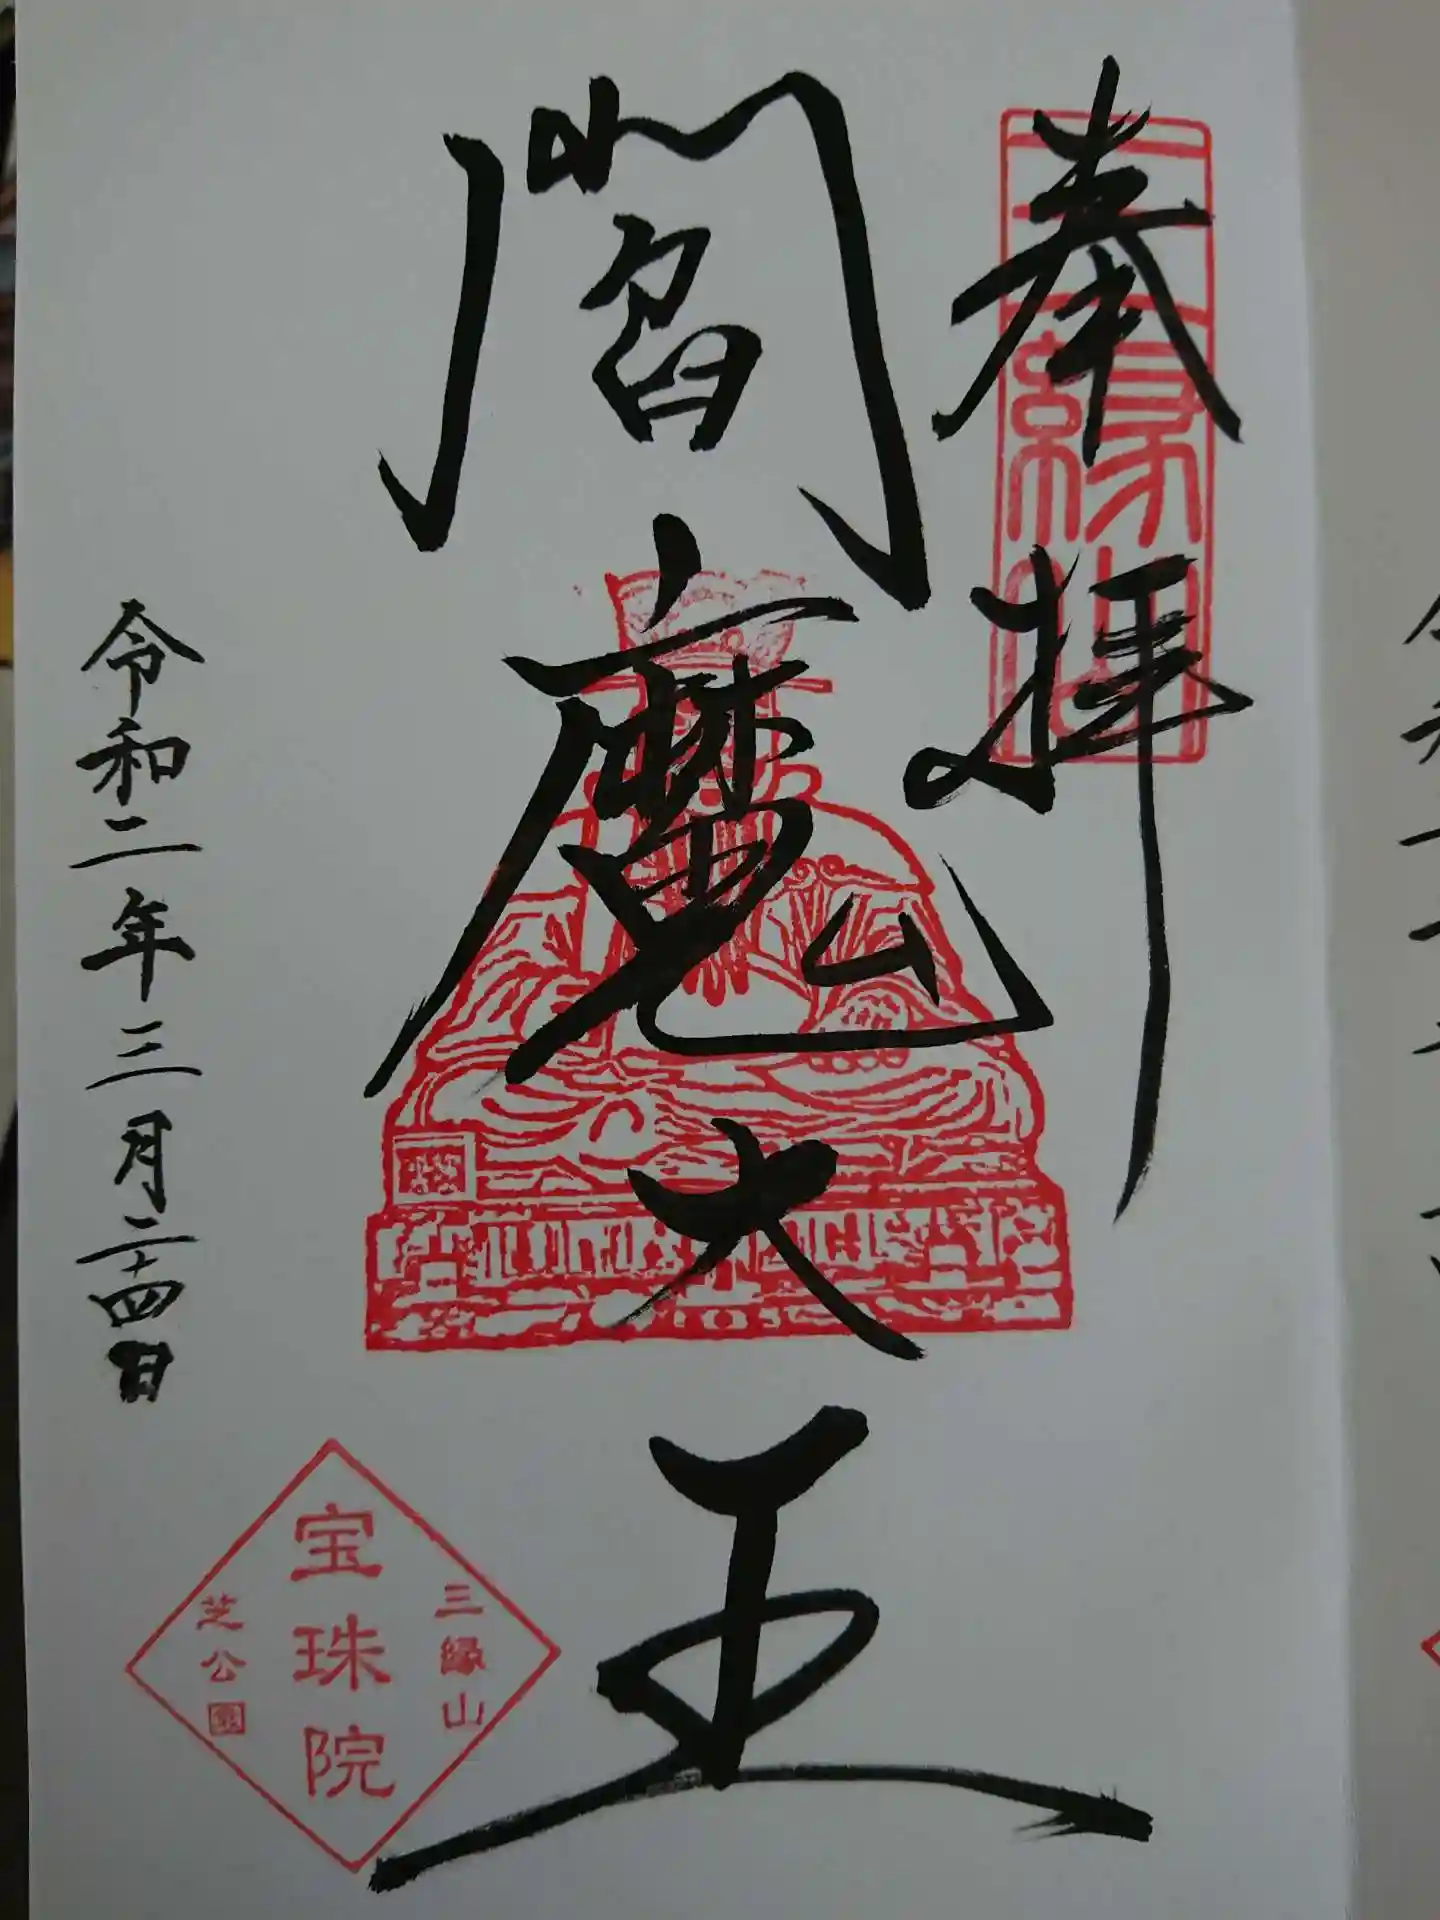 奉拝
三縁山
閻魔大王
令和二年三月二十四日
三縁山
宝珠院
芝公園